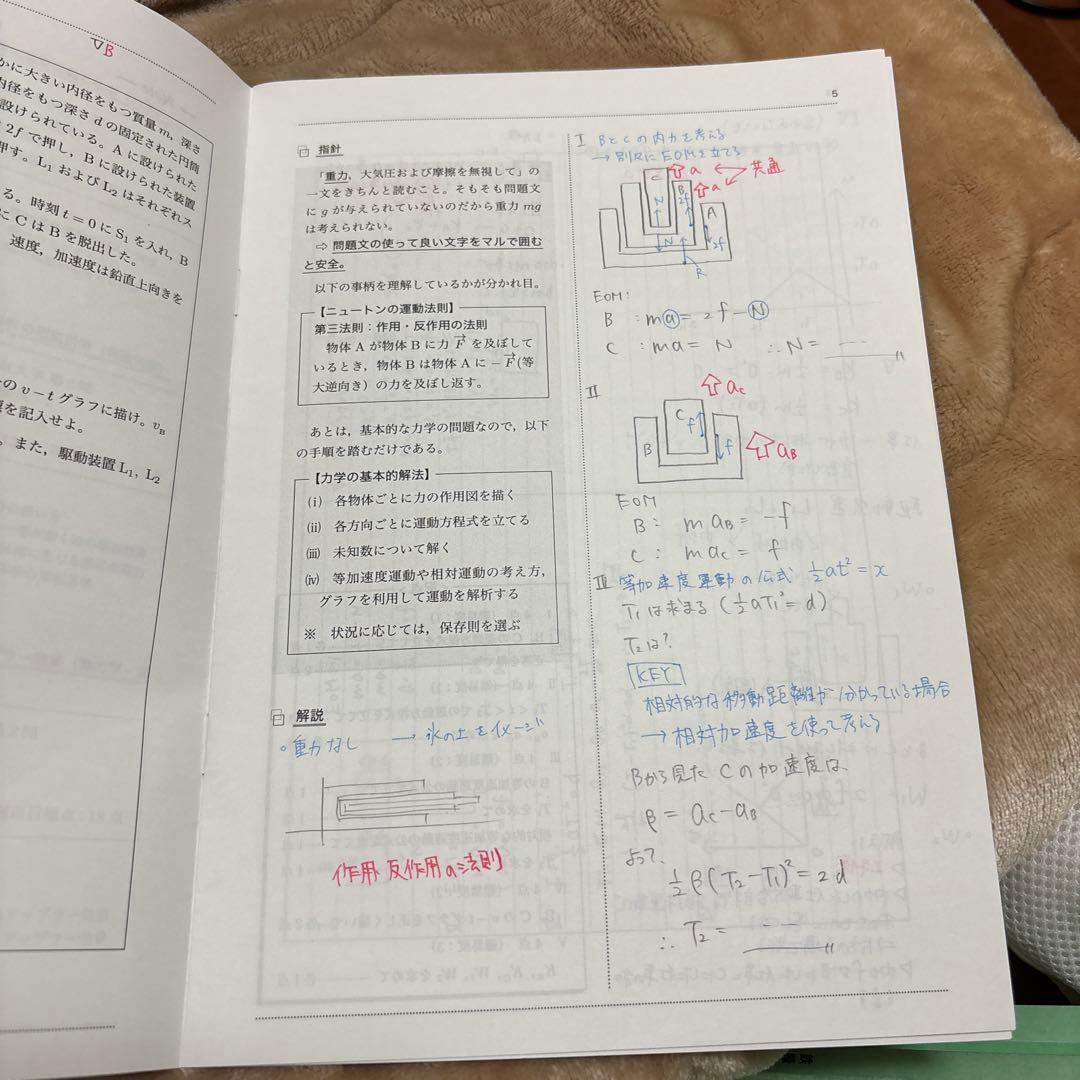 ▽B
かに大きい内径をもつ質量 m, 深さ
内径をもつ深さ d の固定された円筒
設けられている。A に設けられた
2f で押し，B に設けられた装置
押す。L₁ および L₂ はそれぞれス
る。時刻 t = 0 に S₁ を入れ，B
に C は B を脱出した。
速度，加速度は鉛直上向きを
の v − t グラフに描け。v_B
標を記入せよ。
。また，駆動装置 L₁，L₂
5
指針
「重力，大気圧および摩擦を無視して」の
一文をきちんと読むこと。そもそも問題文
に g が与えられていないのだから重力 mg
は考えられない。
⇨ 問題文の使って良い文字をマルで囲む
と安全。
以下の事柄を理解しているかが分かれ目。
【ニュートンの運動法則】
第三法則：作用・反作用の法則
物体 A が物体 B に力 F→ を及ぼして
いるとき，物体 B は物体 A に −F→(等
大逆向き) の力を及ぼし返す。
あとは，基本的な力学の問題なので，以下
の手順を踏むだけである。
【力学の基本的解法】
(i) 各物体ごとに力の作用図を描く
(ii) 各方向ごとに運動方程式を立てる
(iii) 未知数について解く
(iv) 等加速度運動や相対運動の考え方，
グラフを利用して運動を解析する
※ 状況に応じては，保存則を選ぶ
解説
○重力なし → 氷の上をイメージ
作用、反作用の法則
I BとCの内力を考える
→ 別々にEOMを立てる
C a 共通
B 2f a
N A
N 2f
R
EOM:
B : ma = 2f − N
C : ma = N ∴ N = ...
II
a_C
C f
B f a_B
EOM
B: m a_B = −f
C: m a_C = f
III 等加速度運動の公式 ½at² = x
T₁は求まる (½aT₁² = d)
T₂は?
KEY
相対的な移動距離が分かっている場合
→ 相対加速度を使って考える
Bから見たCの加速度は、
β = a_C − a_B
よって、
½β(T₂−T₁)² = 2d
∴ T₂ = ...